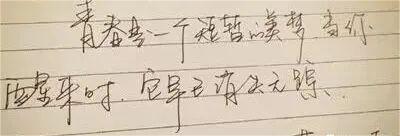 青春是一个短暂的美梦，当你
醒来时，它早已消失无踪